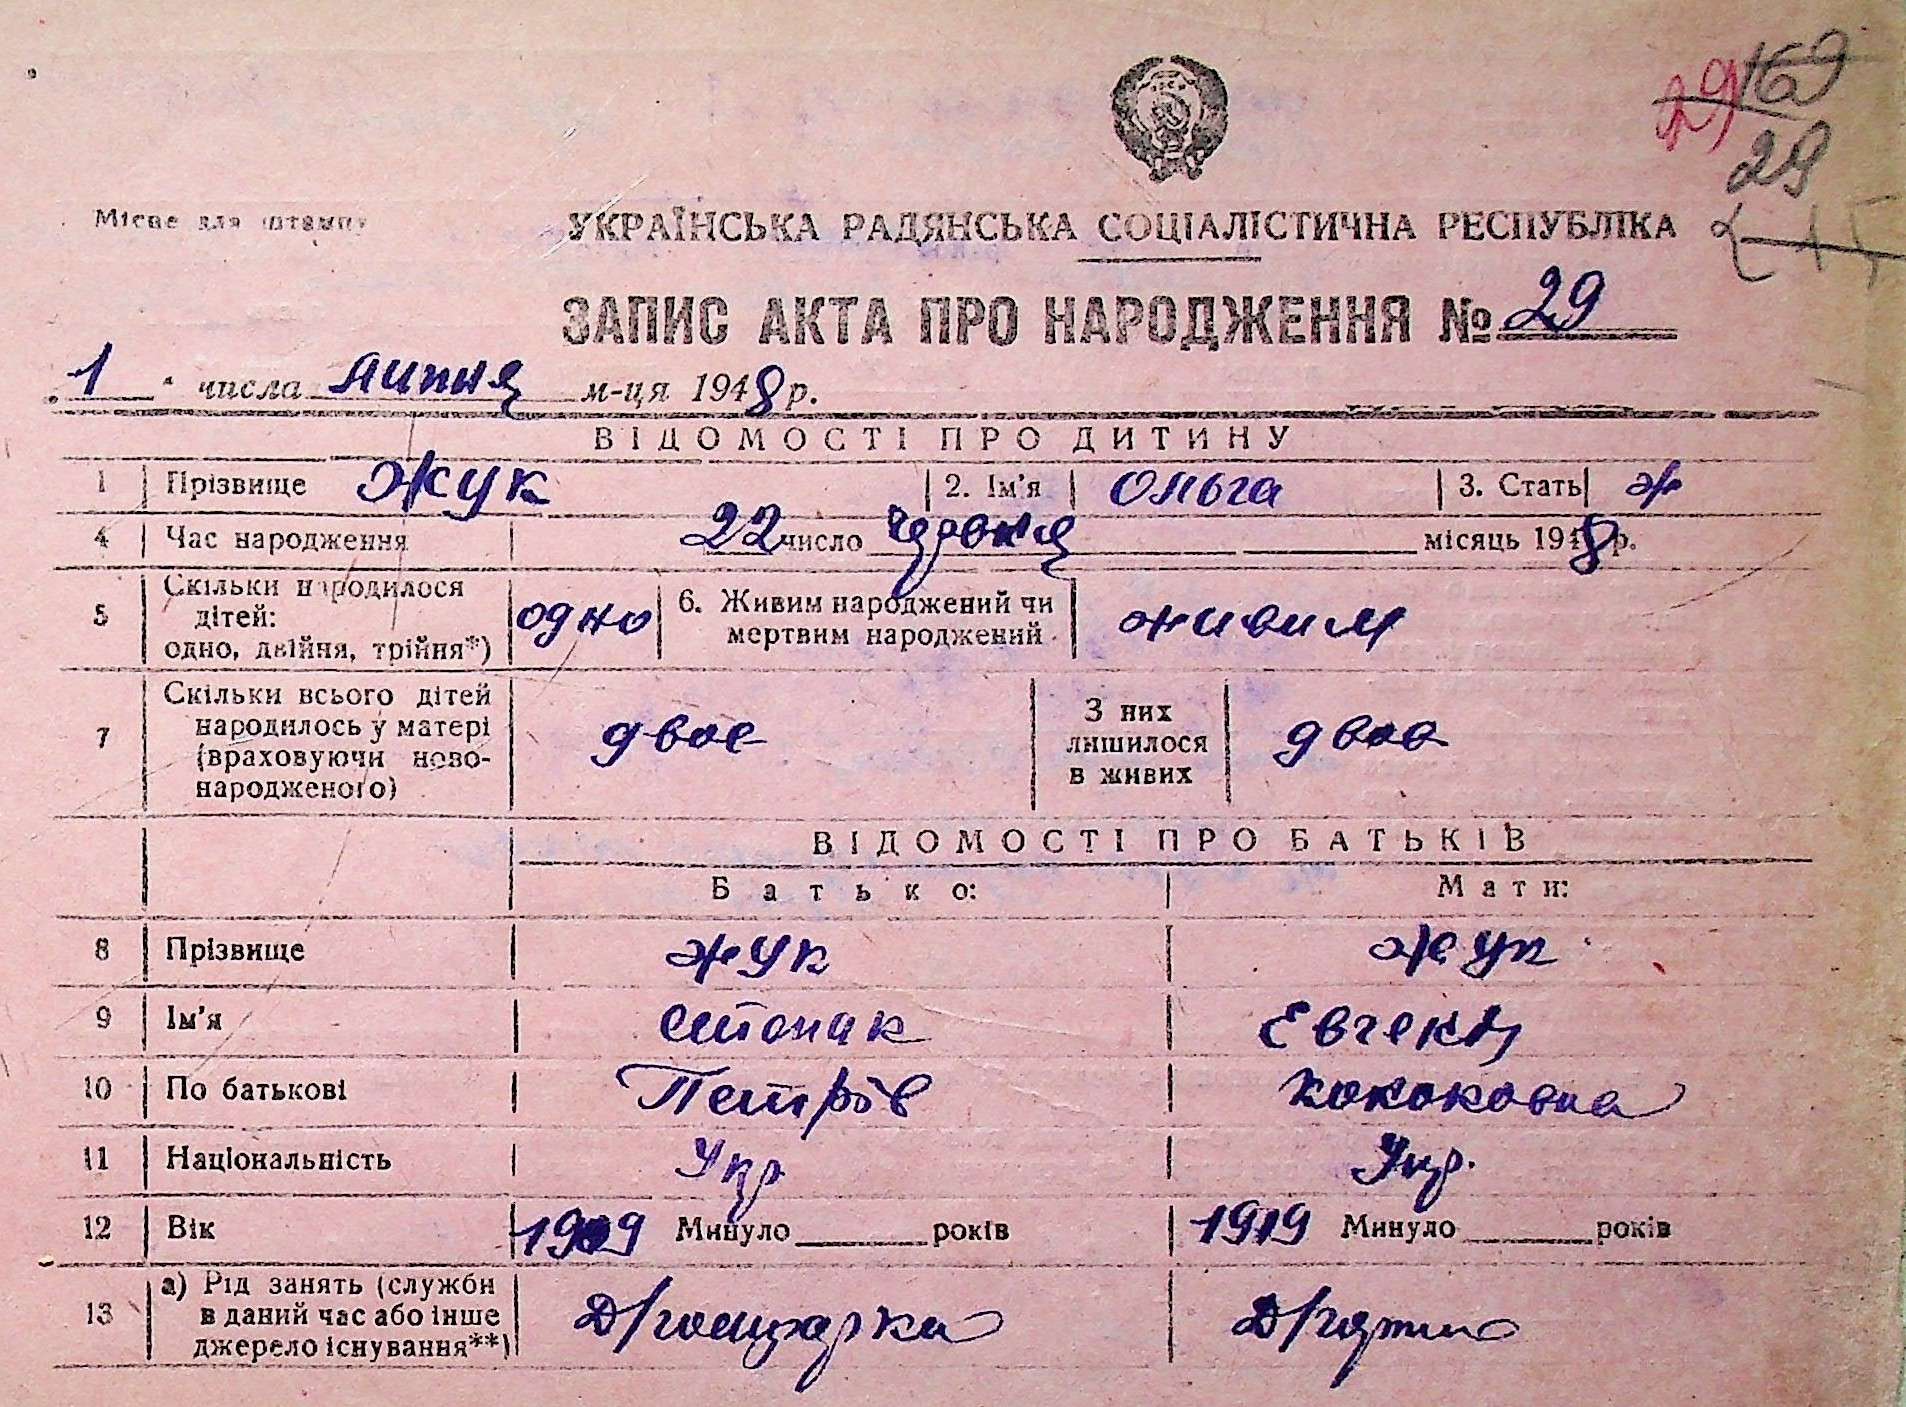 29 169
29
Місце для штампу
УКРАЇНСЬКА РАДЯНСЬКА СОЦІАЛІСТИЧНА РЕСПУБЛІКА
ЗАПИС АКТА ПРО НАРОДЖЕННЯ № 29
1 числа липня м-ця 1948 р.
ВІДОМОСТІ ПРО ДИТИНУ
1 Прізвище Жук 2. Ім'я Ольга 3. Стать ж
4 Час народження 22 число червня місяць 1948 р.
Скільки народилося
дітей:
5 одно, двійня, трійня*) одно 6. Живим народжений чи
мертвим народжений живим
Скільки всього дітей
народилось у матері
7 (враховуючи ново-
народженого) двоє З них
лишилося
в живих двоє
ВІДОМОСТІ ПРО БАТЬКІВ
Батько: Мати:
8 Прізвище Жук Жук
9 Ім'я
10 По батькові Петрів
11 Національність Укр Укр.
12 Вік 1909 Минуло років 1919 Минуло років
а) Рід занять (служби
13 в даний час або інше
джерело існування**)